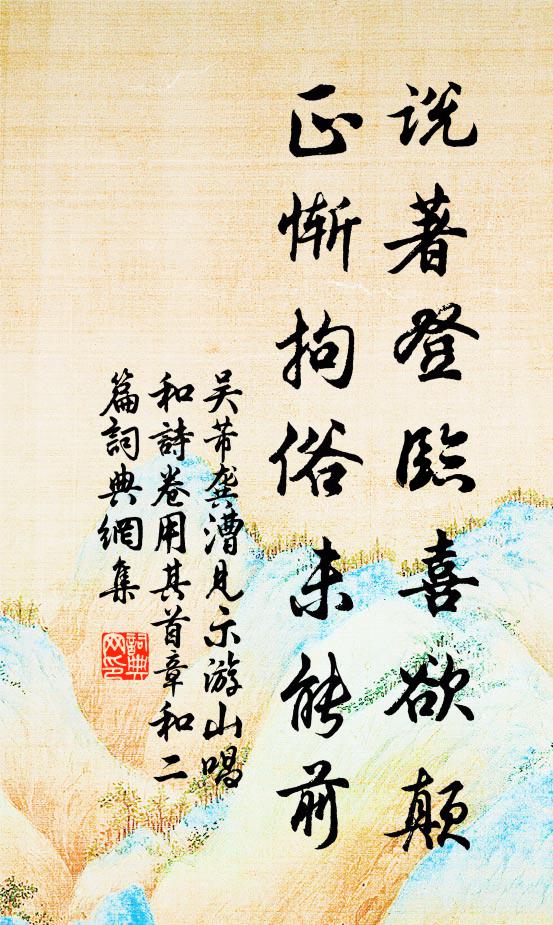 说著登臨喜欲颠
正慚拘俗未能前
吴芾龚漕见示游山唱
和詩卷用其首章和二
篇詞典網集
詞典
网印